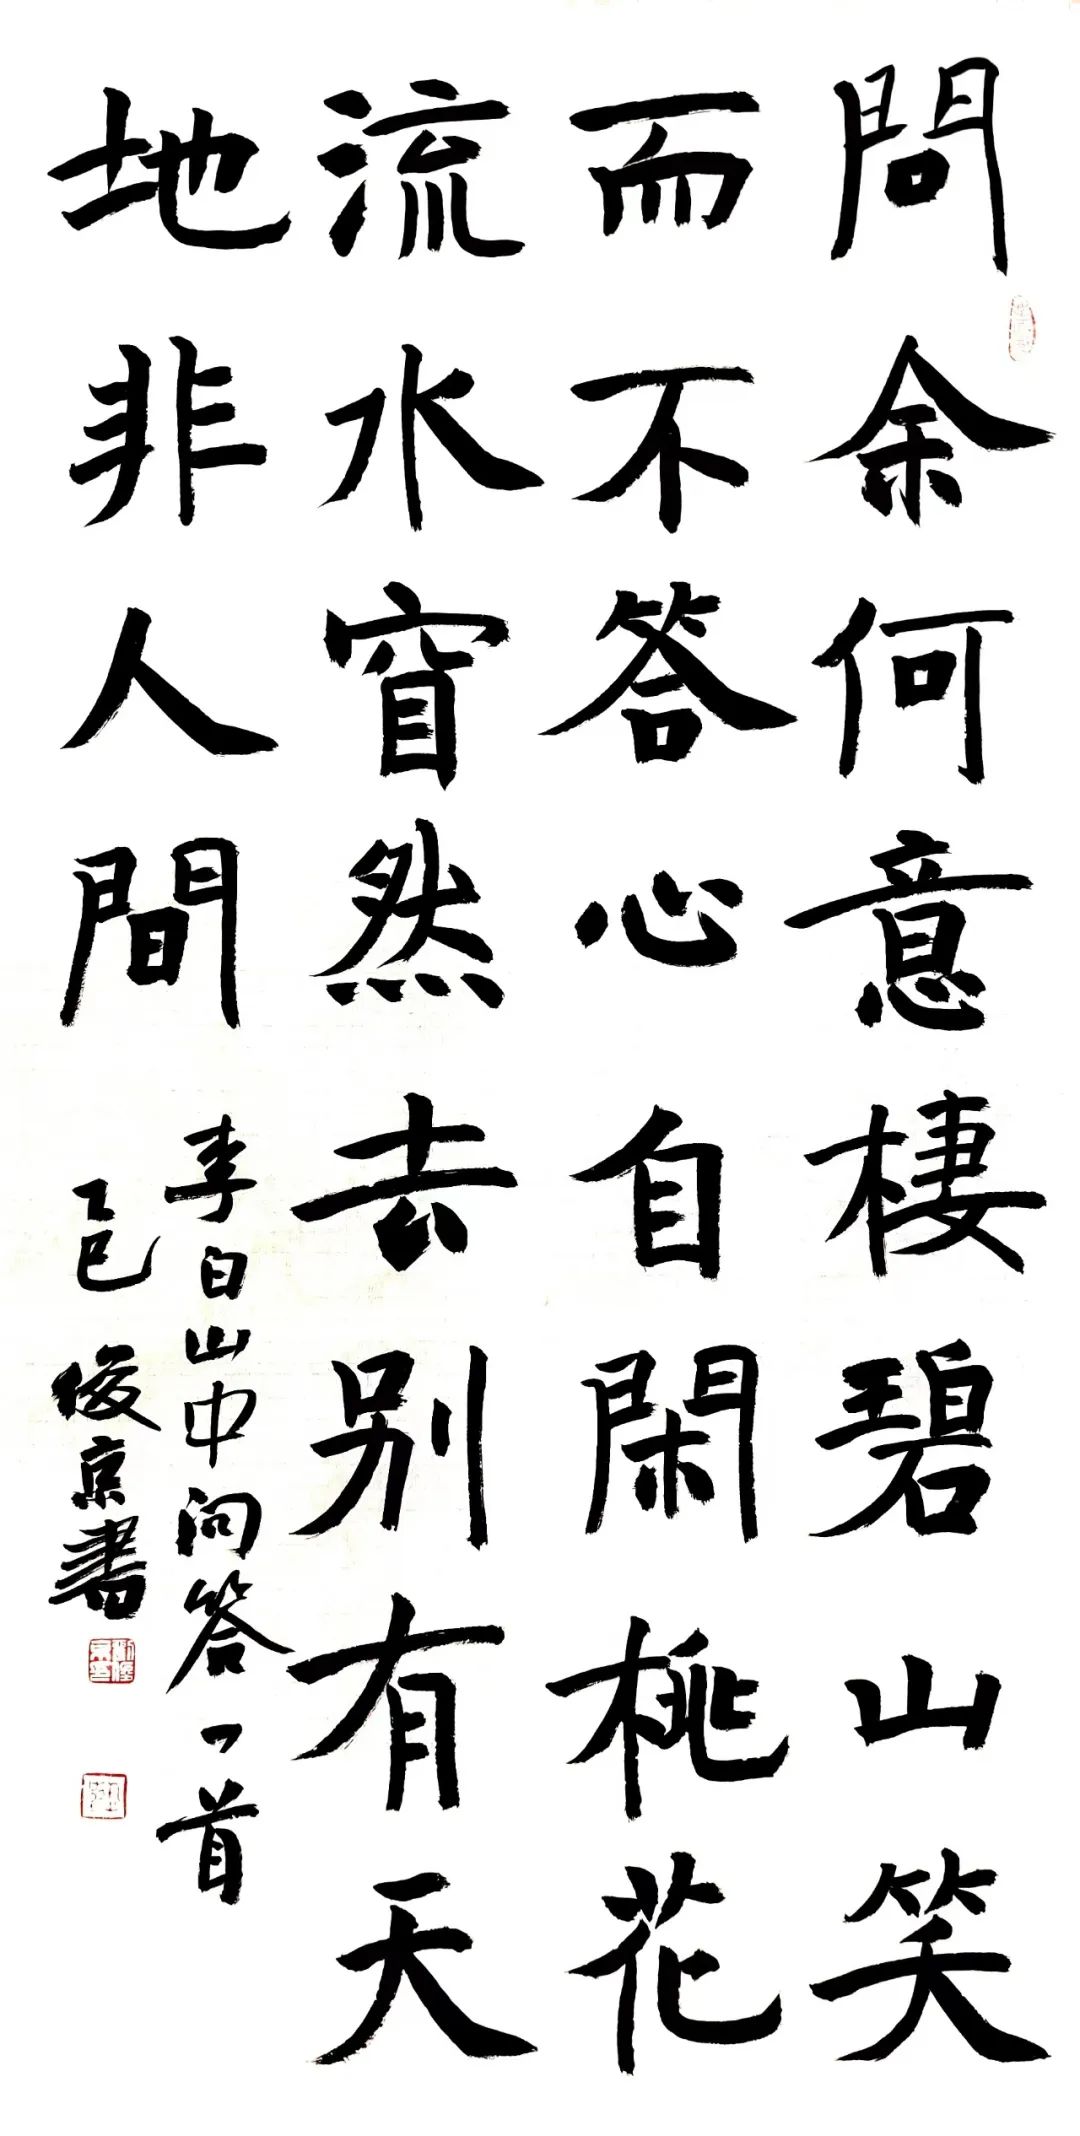 問余何意棲碧山笑
而不答心自閑桃花
流水窅然去别有天
地非人間
李白山中问答一首
乙巳 俊京書